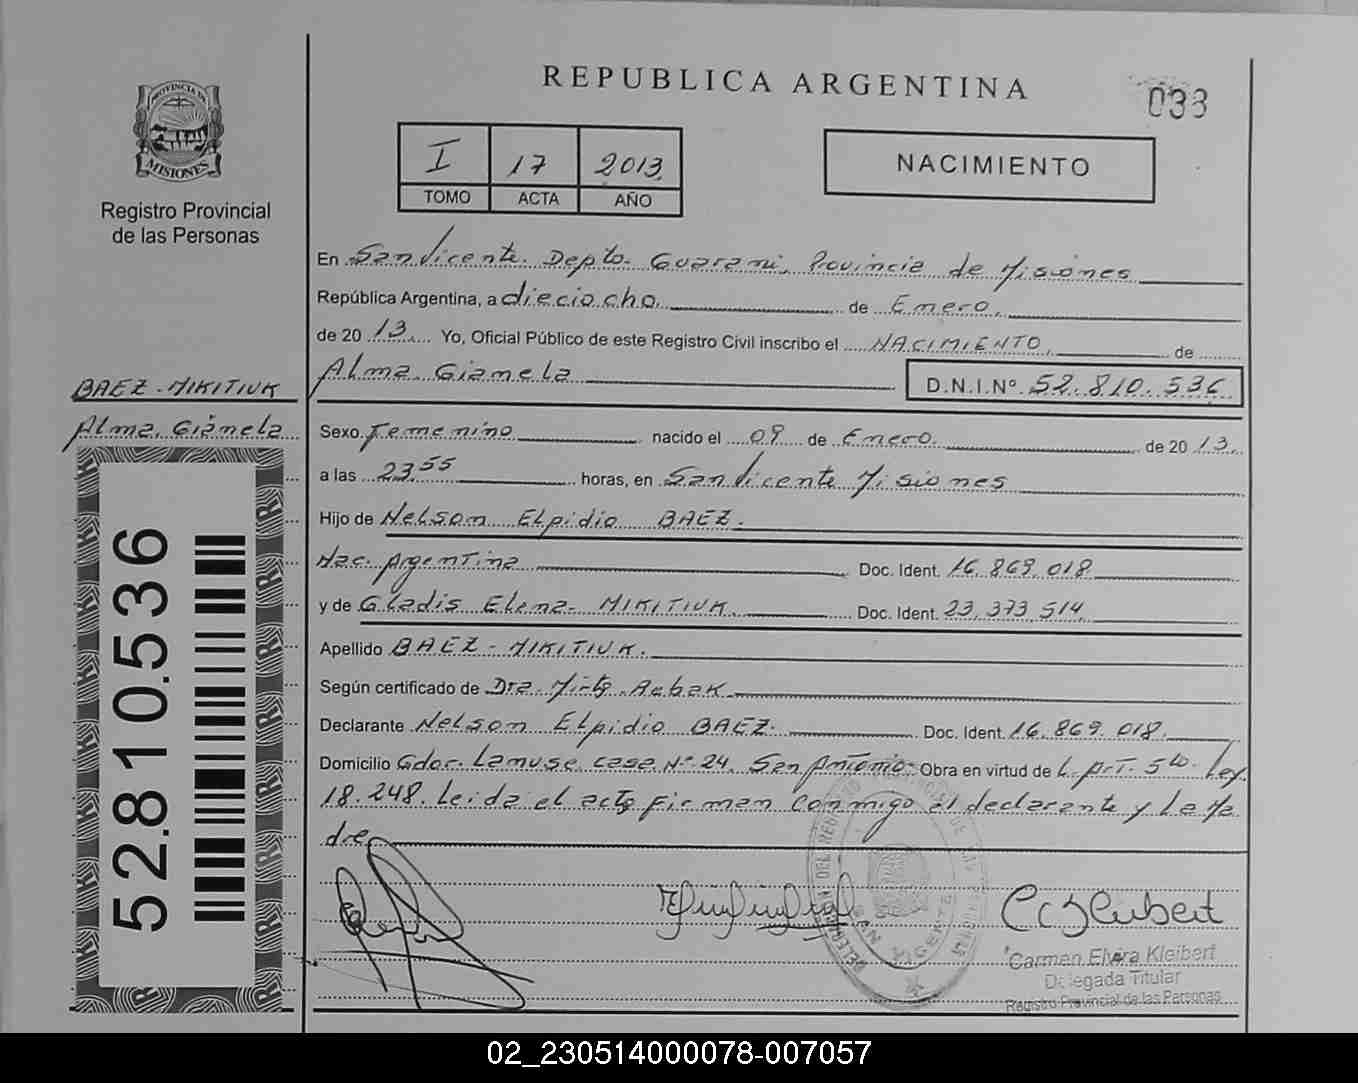 REPUBLICA ARGENTINA
033
PROVINCIA DE
MISIONES
Registro Provincial
de las Personas
I 17 2013
TOMO ACTA AÑO
NACIMIENTO
En San Vicente. Depto. Guarani, Provincia de Misiones
República Argentina, a dieciocho. de Enero.
de 20 13. Yo, Oficial Público de este Registro Civil inscribo el NACIMIENTO. de
Alma Giamela D.N.I.Nº 52.810.536
BAEZ-MIKITIUK
Alma Giamela
52.810.536
Sexo Femenino nacido el 09 de Enero. de 20 13.
a las 23.55 horas, en San Vicente Misiones
Hijo de Nelson Elpidio BAEZ.
Nac. Argentina Doc. Ident. 16.869.018
y de Gladis Elena MIKITIUK. Doc. Ident. 23.373.514
Apellido BAEZ-MIKITIUK.
Según certificado de Dra. Mirta
Declarante Nelson Elpidio BAEZ. Doc. Ident. 16.869.018.
Domicilio Gdor. Lanusse casa Nº 24. San Antonio. Obra en virtud de L. Art. 5to. Ley
18.248. Leida el acta firman conmigo el declarante y La Ma
dre
Carmen Elvira Kleibert
Delegada Titular
Registro Provincial de las Personas
02_230514000078-007057